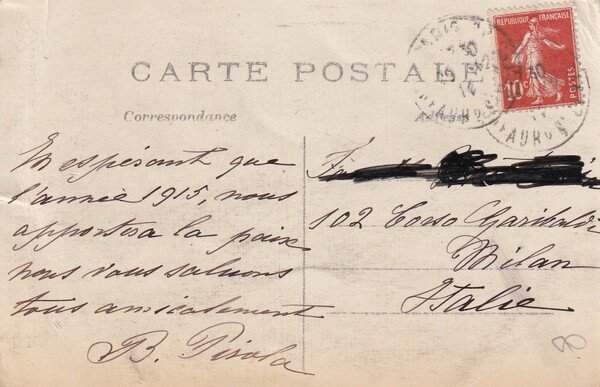 CARTE POSTALE
Correspondance
Adresse
REPUBLIQUE FRANÇAISE
10c
POSTES
PARIS
En espérant que
l'année 1915, nous
apportera la paix
nous vous saluons
tous amicalement
B. Pirola
102 Corso Garibaldi
Milan
Italie